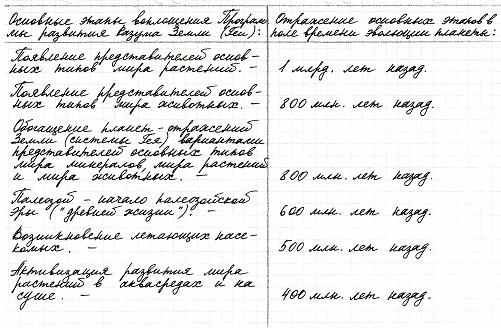 Основные этапы воплощения Програм-
мы развития Разума Земли (Геи):
Отражение основных этапов в
поле времени эволюции планеты:
Появление представителей основ-
ных типов мира растений. –
1 млрд. лет назад.
Появление представителей основ-
ных типов мира животных. –
800 млн. лет назад.
Обогащение планет-отражений
Земли (системы Гея) вариантами
представителей основных типов
мира минералов, мира растений
и мира животных. –
800 млн. лет назад.
Палеозой – начало палеозойской
эры ("древней жизни"). –
600 млн. лет назад.
Возникновение летающих насе-
комых. –
500 млн. лет назад.
Активизация развития мира
растений в аквасредах и на
суше. –
400 млн. лет назад.